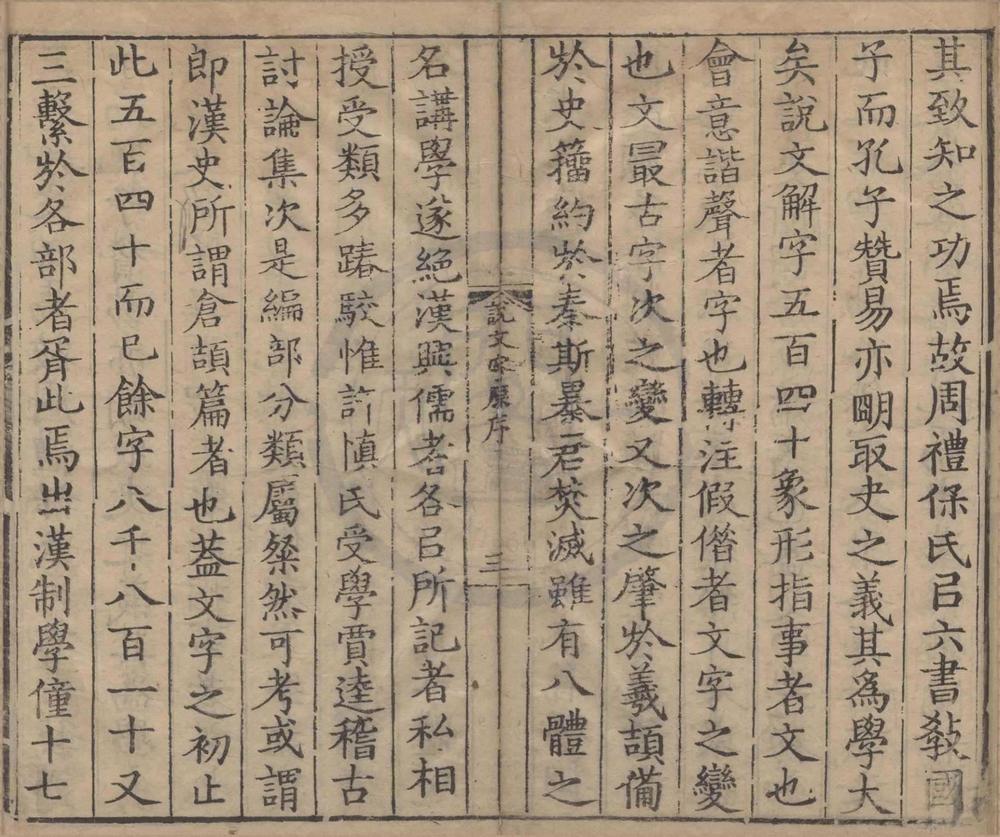 其致知之功焉故周禮保氏㠯六書教國
子而孔子贊易亦朙取史之義其為學大
矣說文解字五百四十象形指事者文也
會意諧聲者字也轉注假借者文字之變
也文㝡古字次之變又次之肇於羲頡備
於史籀約於秦斯暴君焚滅雖有八體之
說文字原序
三
名講學遂絕漢興儒者各㠯所記者私相
授受類多踳駁惟許慎氏受學賈逵稽古
討論集次是編部分類屬粲然可考或謂
即漢史所謂倉頡篇者也葢文字之初止
此五百四十而已餘字八千八百一十又
三繫於各部者胥此焉出漢制學僮十七